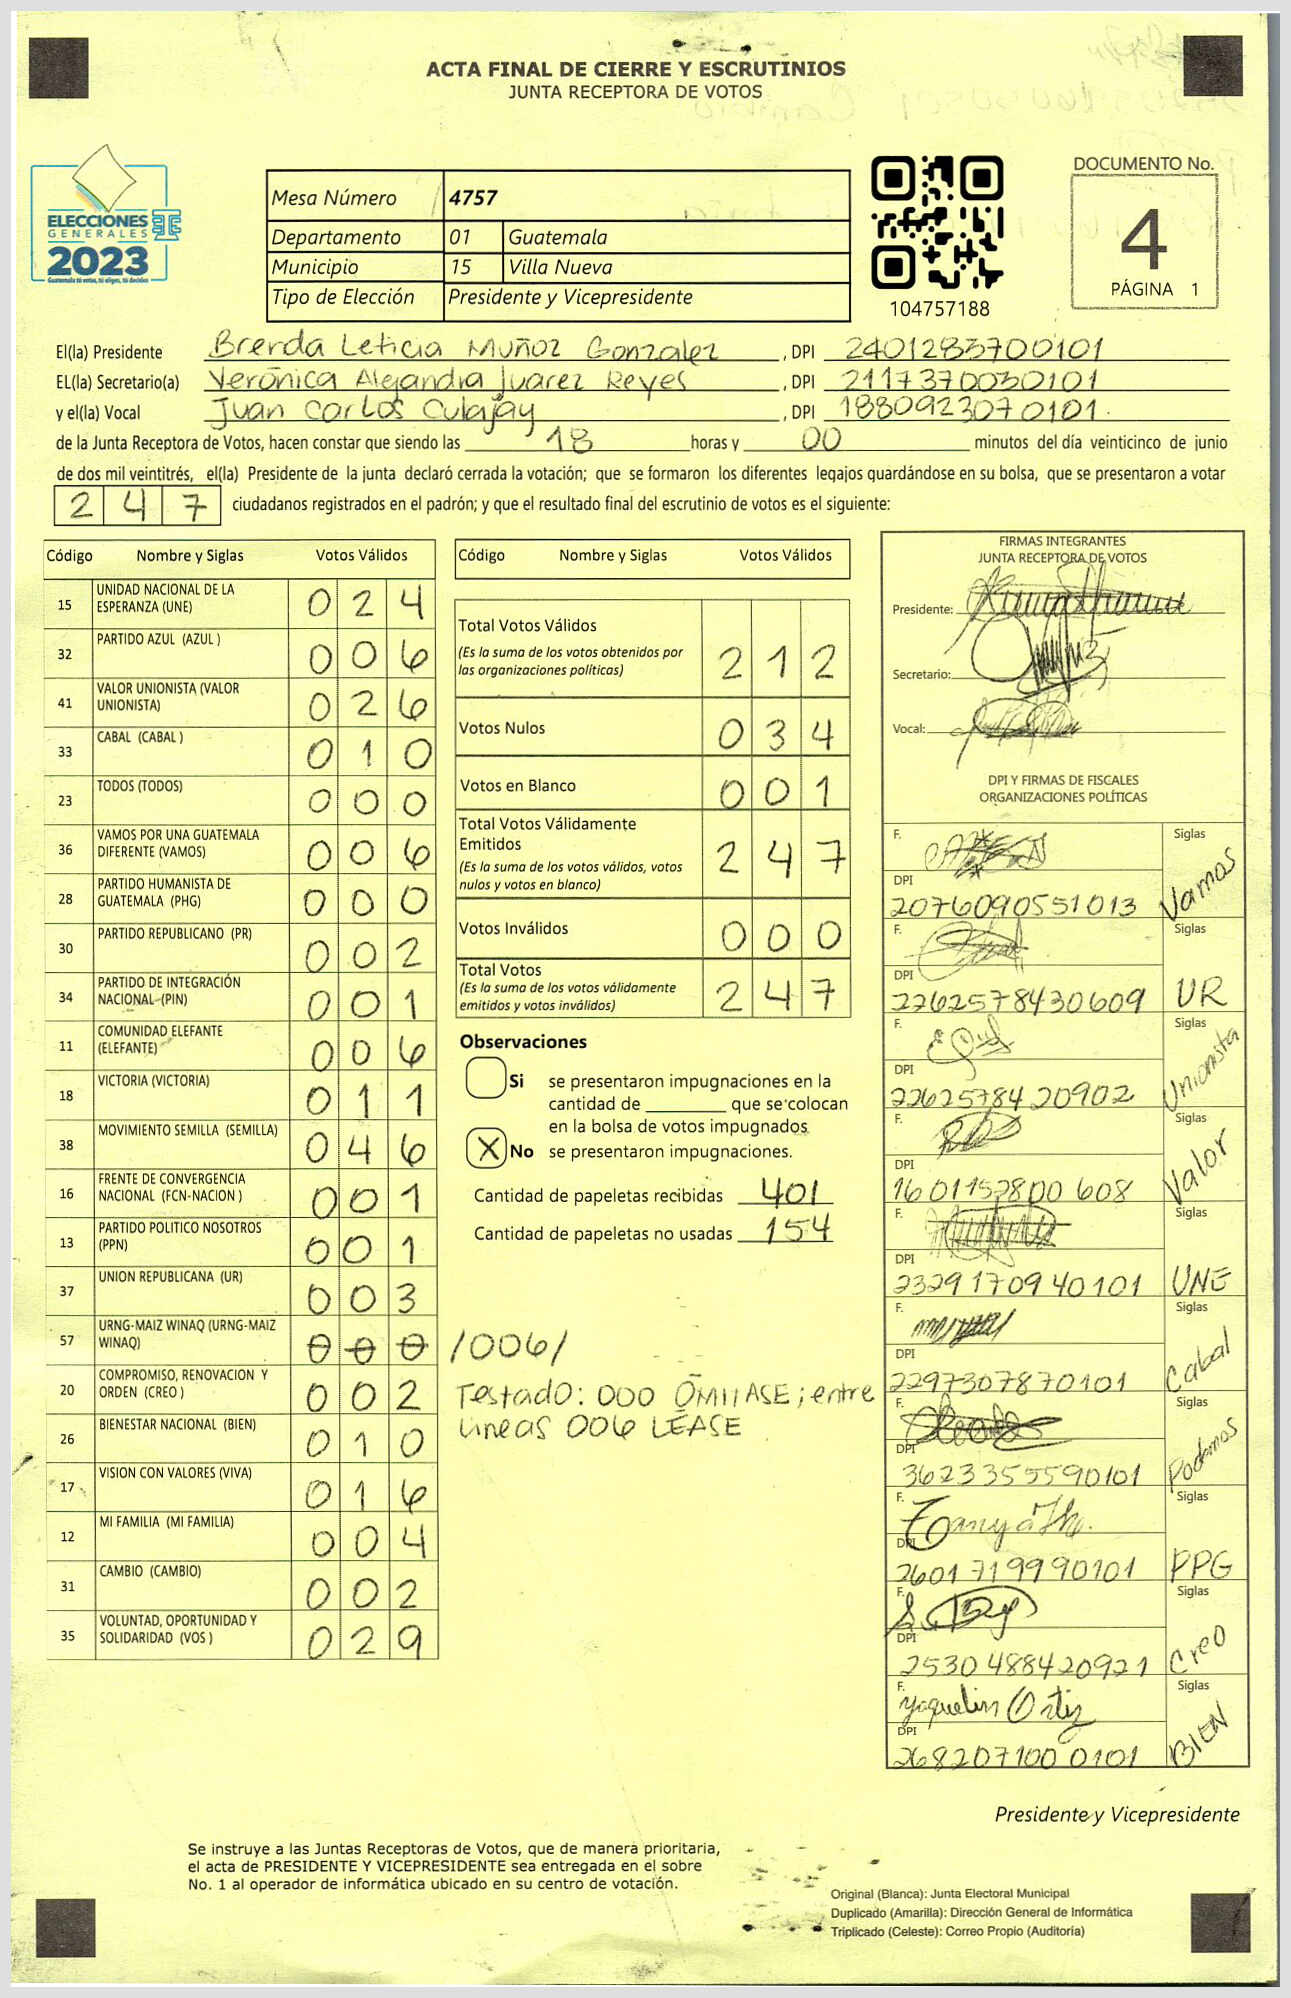 ACTA FINAL DE CIERRE Y ESCRUTINIOS
JUNTA RECEPTORA DE VOTOS
ELECCIONES
GENERALES
2023
Guatemala tú votas, tú eliges, tú decides
Mesa Número 4757
Departamento 01 Guatemala
Municipio 15 Villa Nueva
Tipo de Elección Presidente y Vicepresidente
104757188
DOCUMENTO No.
4
PÁGINA 1
El(la) Presidente Brenda Leticia Muñoz Gonzalez, DPI 2401283700101
EL(la) Secretario(a) Verónica Alejandra Juarez Reyes, DPI 2117370030101
y el(la) Vocal Juan Carlos Culajay, DPI 1880923070101.
de la Junta Receptora de Votos, hacen constar que siendo las 18 horas y 00 minutos del día veinticinco de junio
de dos mil veintitrés, el(la) Presidente de la junta declaró cerrada la votación; que se formaron los diferentes legajos guardándose en su bolsa, que se presentaron a votar
247 ciudadanos registrados en el padrón; y que el resultado final del escrutinio de votos es el siguiente:
Código Nombre y Siglas Votos Válidos
15 UNIDAD NACIONAL DE LA ESPERANZA (UNE) 024
32 PARTIDO AZUL (AZUL ) 006
41 VALOR UNIONISTA (VALOR UNIONISTA) 026
33 CABAL (CABAL ) 010
23 TODOS (TODOS) 000
36 VAMOS POR UNA GUATEMALA DIFERENTE (VAMOS) 006
28 PARTIDO HUMANISTA DE GUATEMALA (PHG) 000
30 PARTIDO REPUBLICANO (PR) 002
34 PARTIDO DE INTEGRACIÓN NACIONAL (PIN) 001
11 COMUNIDAD ELEFANTE (ELEFANTE) 006
18 VICTORIA (VICTORIA) 011
38 MOVIMIENTO SEMILLA (SEMILLA) 046
16 FRENTE DE CONVERGENCIA NACIONAL (FCN-NACION ) 001
13 PARTIDO POLITICO NOSOTROS (PPN) 001
37 UNION REPUBLICANA (UR) 003
57 URNG-MAIZ WINAQ (URNG-MAIZ WINAQ) 000 /006/
20 COMPROMISO, RENOVACION Y ORDEN (CREO ) 002
26 BIENESTAR NACIONAL (BIEN) 010
17 VISION CON VALORES (VIVA) 016
12 MI FAMILIA (MI FAMILIA) 004
31 CAMBIO (CAMBIO) 002
35 VOLUNTAD, OPORTUNIDAD Y SOLIDARIDAD (VOS ) 029
Código Nombre y Siglas Votos Válidos
Total Votos Válidos 212
(Es la suma de los votos obtenidos por
las organizaciones políticas)
Votos Nulos 034
Votos en Blanco 001
Total Votos Válidamente
Emitidos 247
(Es la suma de los votos válidos, votos
nulos y votos en blanco)
Votos Inválidos 000
Total Votos 247
(Es la suma de los votos válidamente
emitidos y votos inválidos)
Observaciones
Si se presentaron impugnaciones en la
cantidad de ________ que se colocan
en la bolsa de votos impugnados
X No se presentaron impugnaciones.
Cantidad de papeletas recibidas 401
Cantidad de papeletas no usadas 154
Testado: 000 OMITASE; entre
lineas 006 LEASE
FIRMAS INTEGRANTES
JUNTA RECEPTORA DE VOTOS
Presidente:
Secretario:
Vocal:
DPI Y FIRMAS DE FISCALES
ORGANIZACIONES POLÍTICAS
F. Siglas
DPI
2076090551013 Vamos
F. Siglas
DPI
2262578430609 UR
F. Siglas
DPI
2262578420902 Unionista
F. Siglas
DPI
1601152800608 Valor
F. Siglas
DPI
2329170940101 UNE
F. Siglas
DPI
2297307870101 Cabal
F. Siglas
DPI
3623355590101 Podemos
F. Siglas
DPI
2601719990101 PPG
F. Siglas
DPI
2530488420921 Creo
F. Yaquelin Ortiz Siglas
DPI
2682071000101 BIEN
Presidente y Vicepresidente
Se instruye a las Juntas Receptoras de Votos, que de manera prioritaria,
el acta de PRESIDENTE Y VICEPRESIDENTE sea entregada en el sobre
No. 1 al operador de informática ubicado en su centro de votación.
Original (Blanca): Junta Electoral Municipal
Duplicado (Amarilla): Dirección General de Informática
Triplicado (Celeste): Correo Propio (Auditoría)